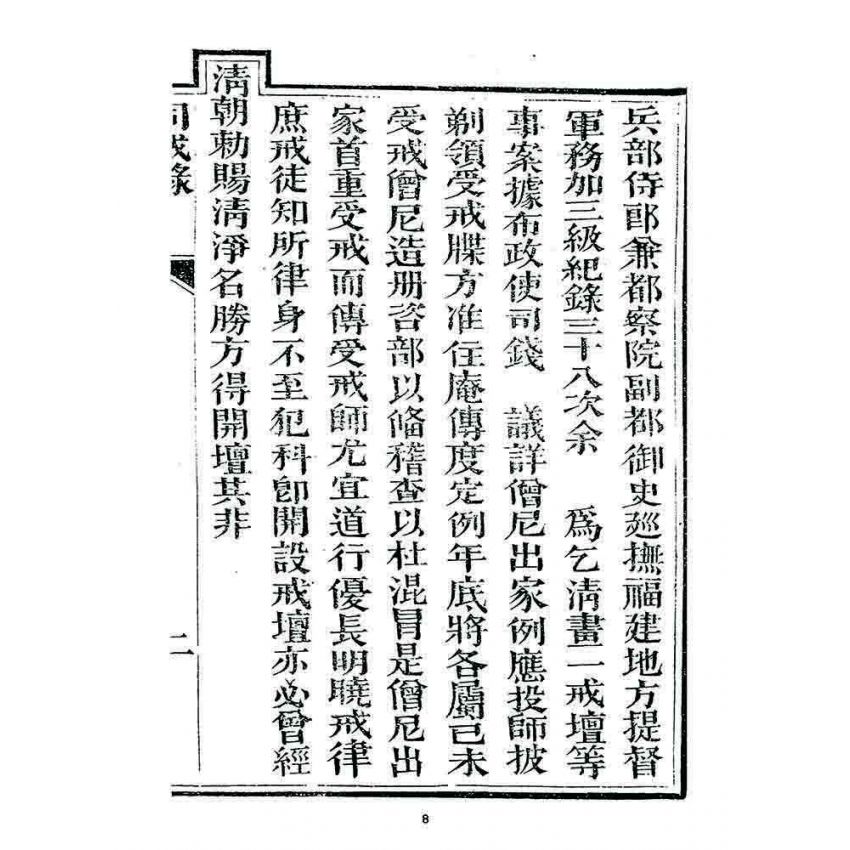 兵部侍郎兼都察院副都御史廵撫福建地方提督
軍務加三級紀錄三十八次余　為乞淸畫一戒壇等
事案據布政使司錢　議詳僧尼出家例應投師披
剃領受戒牒方准住庵傳度定例年底將各屬已未
受戒僧尼造册咨部以俻稽查以杜混冐是僧尼出
家首重受戒而傳受戒師尤宜道行優長明曉戒律
庶戒徒知所律身不至犯科卽開設戒壇亦必曾經
淸朝勅賜淸淨名勝方得開壇其非
同戒錄
二
8